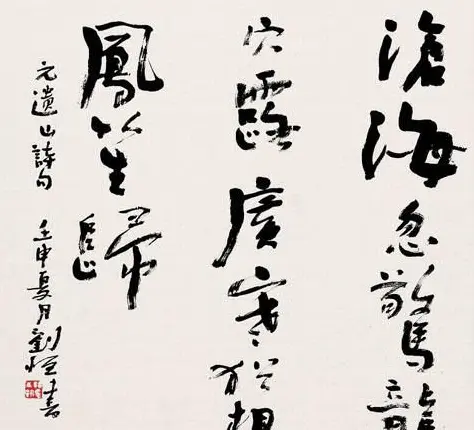 滄海忽驚龍
穴露廣寒猶想
鳳笙歸
元遺山詩句 壬申夏月劉恒書